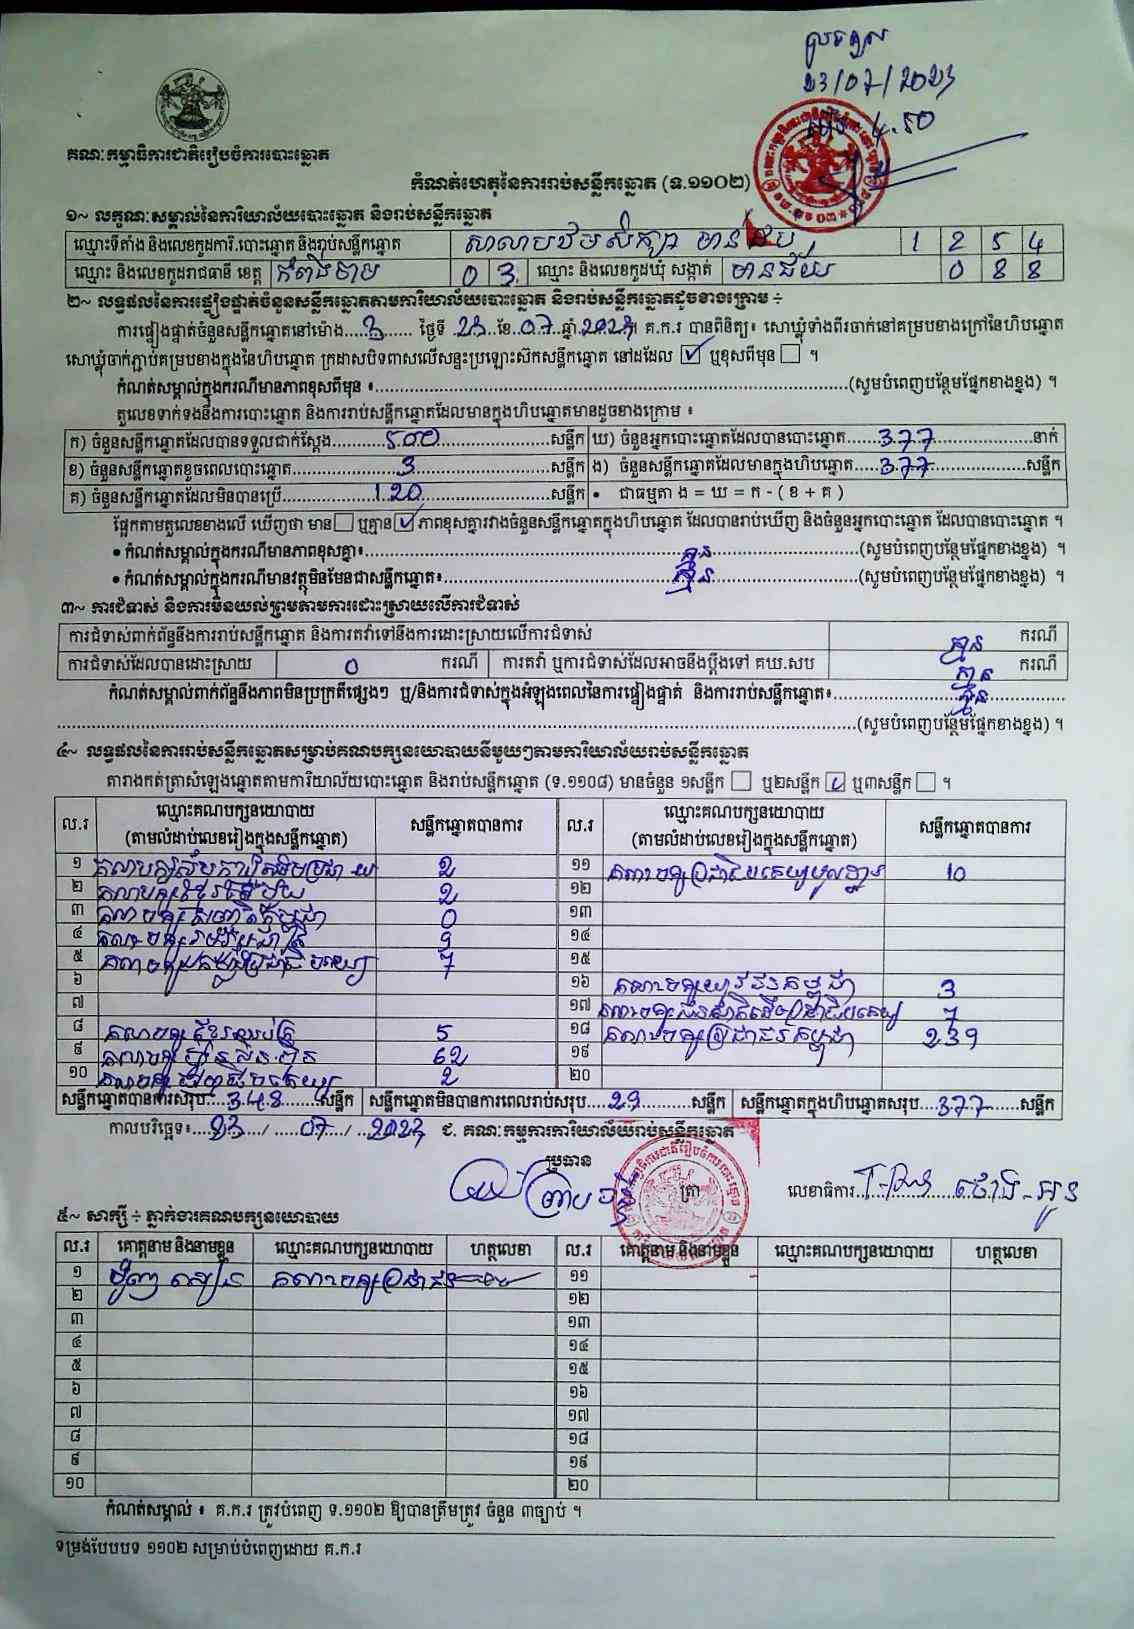 23/07/2023
4.50
គណៈកម្មាធិការជាតិរៀបចំការបោះឆ្នោត
កំណត់ហេតុនៃការរាប់សន្លឹកឆ្នោត (ទ.១១០២)
១~ លក្ខណៈសម្គាល់នៃការិយាល័យបោះឆ្នោត និងរាប់សន្លឹកឆ្នោត
ឈ្មោះទីតាំង និងលេខកូដការិ.បោះឆ្នោត និងរាប់សន្លឹកឆ្នោត សាលាបឋមសិក្សា មានជ័យ 1 2 5 4
ឈ្មោះ និងលេខកូដរាជធានី ខេត្ត កំពង់ចាម 0 3 ឈ្មោះ និងលេខកូដឃុំ សង្កាត់ មានជ័យ 0 8 8
២~ លទ្ធផលនៃការផ្ទៀងផ្ទាត់ចំនួនសន្លឹកឆ្នោតតាមការិយាល័យបោះឆ្នោត និងរាប់សន្លឹកឆ្នោតដូចខាងក្រោម ÷
ការផ្ទៀងផ្ទាត់ចំនួនសន្លឹកឆ្នោតនៅម៉ោង 3 ថ្ងៃទី 23 ខែ 07 ឆ្នាំ 2023 គ.ក.រ បានពិនិត្យ៖ សោឃ្លុំទាំងពីរចាក់នៅគម្របខាងក្រៅនៃហិបឆ្នោត
សោឃ្លុំចាក់ភ្ជាប់គម្របខាងក្នុងនៃហិបឆ្នោត ក្រដាសបិទពាសលើសន្ទះប្រឡោះស៊កសន្លឹកឆ្នោត នៅដដែល ☑ ឬខុសពីមុន ☐ ។
កំណត់សម្គាល់ក្នុងករណីមានភាពខុសពីមុន ៖ (សូមបំពេញបន្ថែមផ្នែកខាងខ្នង) ។
តួលេខទាក់ទងនឹងការបោះឆ្នោត និងការរាប់សន្លឹកឆ្នោតដែលមានក្នុងហិបឆ្នោតមានដូចខាងក្រោម ៖
ក) ចំនួនសន្លឹកឆ្នោតដែលបានទទួលជាក់ស្តែង 500 សន្លឹក ឃ) ចំនួនអ្នកបោះឆ្នោតដែលបានបោះឆ្នោត 377 នាក់
ខ) ចំនួនសន្លឹកឆ្នោតខូចពេលបោះឆ្នោត 3 សន្លឹក ង) ចំនួនសន្លឹកឆ្នោតដែលមានក្នុងហិបឆ្នោត 377 សន្លឹក
គ) ចំនួនសន្លឹកឆ្នោតដែលមិនបានប្រើ 120 សន្លឹក • ជាធម្មតា ង = ឃ = ក - ( ខ + គ )
ផ្អែកតាមតួលេខខាងលើ ឃើញថា មាន ☐ ឬគ្មាន ☑ ភាពខុសគ្នារវាងចំនួនសន្លឹកឆ្នោតក្នុងហិបឆ្នោត ដែលបានរាប់ឃើញ និងចំនួនអ្នកបោះឆ្នោត ដែលបានបោះឆ្នោត ។
• កំណត់សម្គាល់ក្នុងករណីមានភាពខុសគ្នា៖ គ្មាន (សូមបំពេញបន្ថែមផ្នែកខាងខ្នង) ។
• កំណត់សម្គាល់ក្នុងករណីមានវត្ថុមិនមែនជាសន្លឹកឆ្នោត៖ គ្មាន (សូមបំពេញបន្ថែមផ្នែកខាងខ្នង) ។
៣~ ការជំទាស់ និងការមិនយល់ព្រមតាមការដោះស្រាយលើការជំទាស់
ការជំទាស់ពាក់ព័ន្ធនឹងការរាប់សន្លឹកឆ្នោត និងការតវ៉ាទៅនឹងការដោះស្រាយលើការជំទាស់ គ្មាន ករណី
ការជំទាស់ដែលបានដោះស្រាយ 0 ករណី ការតវ៉ា ឬការជំទាស់ដែលអាចនឹងប្តឹងទៅ គឃ.សប គ្មាន ករណី
កំណត់សម្គាល់ពាក់ព័ន្ធនឹងភាពមិនប្រក្រតីផ្សេងៗ ឬ/និងការជំទាស់ក្នុងអំឡុងពេលនៃការផ្ទៀងផ្ទាត់ និងការរាប់សន្លឹកឆ្នោត៖ គ្មាន
(សូមបំពេញបន្ថែមផ្នែកខាងខ្នង) ។
៤~ លទ្ធផលនៃការរាប់សន្លឹកឆ្នោតសម្រាប់គណបក្សនយោបាយនីមួយៗតាមការិយាល័យរាប់សន្លឹកឆ្នោត
តារាងកត់ត្រាសំឡេងឆ្នោតតាមការិយាល័យបោះឆ្នោត និងរាប់សន្លឹកឆ្នោត (ទ.១១០៨) មានចំនួន ១សន្លឹក ☐ ឬ២សន្លឹក ☑ ឬ៣សន្លឹក ☐ ។
ល.រ ឈ្មោះគណបក្សនយោបាយ (តាមលំដាប់លេខរៀងក្នុងសន្លឹកឆ្នោត) សន្លឹកឆ្នោតបានការ ល.រ ឈ្មោះគណបក្សនយោបាយ (តាមលំដាប់លេខរៀងក្នុងសន្លឹកឆ្នោត) សន្លឹកឆ្នោតបានការ
១ 2 ១១ គណបក្សប្រជាធិបតេយ្យមូលដ្ឋាន 10
២ 2 ១២
៣ 0 ១៣
៤ 9 ១៤
៥ 7 ១៥
៦ ១៦ គណបក្សយុវជនកម្ពុជា 3
៧ ១៧ 7
៨ គណបក្សខ្មែរឈប់ក្រ 5 ១៨ គណបក្សប្រជាជនកម្ពុជា 239
៩ គណបក្សហ្វ៊ុនស៊ិនប៉ិច 62 ១៩
១០ 2 ២០
សន្លឹកឆ្នោតបានការសរុប 348 សន្លឹក សន្លឹកឆ្នោតមិនបានការពេលរាប់សរុប 29 សន្លឹក សន្លឹកឆ្នោតក្នុងហិបឆ្នោតសរុប 377 សន្លឹក
កាលបរិច្ឆេទ៖ 23 / 07 / 2023 ជ. គណៈកម្មការការិយាល័យរាប់សន្លឹកឆ្នោត
ប្រធាន
ត្រា
លេខាធិការ
៥~ សាក្សី ÷ ភ្នាក់ងារគណបក្សនយោបាយ
ល.រ គោត្តនាម និងនាមខ្លួន ឈ្មោះគណបក្សនយោបាយ ហត្ថលេខា ល.រ គោត្តនាម និងនាមខ្លួន ឈ្មោះគណបក្សនយោបាយ ហត្ថលេខា
១ គណបក្សប្រជាជន ១១
២ ១២
៣ ១៣
៤ ១៤
៥ ១៥
៦ ១៦
៧ ១៧
៨ ១៨
៩ ១៩
១០ ២០
កំណត់សម្គាល់ ៖ គ.ក.រ ត្រូវបំពេញ ទ.១១០២ ឱ្យបានត្រឹមត្រូវ ចំនួន ៣ច្បាប់ ។
ទម្រង់បែបបទ ១១០២ សម្រាប់បំពេញដោយ គ.ក.រ